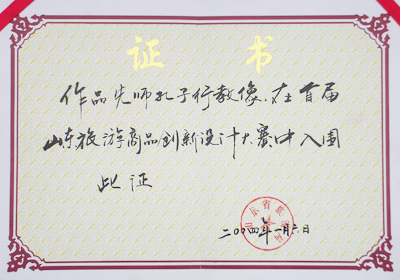 证书
作品先师孔子行教像，在首届
山东旅游商品创新设计大赛中入围
此证
二〇〇四年一月六日